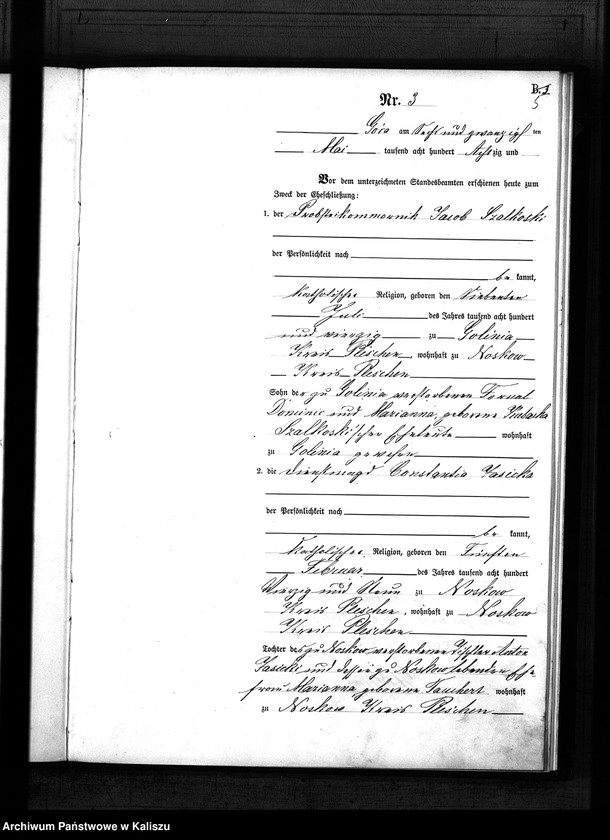 B.
5
Nr. 3
Góra am Sechs und zwanzigsten
Mai tausend acht hundert Achtzig und
Vor dem unterzeichneten Standesbeamten erschienen heute zum
Zweck der Eheschließung:
1. der Probsteikommornik Jacob Szalkoski
der Persönlichkeit nach
be kannt,
katholischer Religion, geboren den Siebenten
Juli des Jahres tausend acht hundert
und vierzig zu Golinia
Kreis Pleschen, wohnhaft zu Noskow
Kreis Pleschen
Sohn der zu Golinia verstorbenen Fornal
Dominic und Marianna, geborene
Szalkoskischen Eheleute wohnhaft
zu Golinia gewesen
2. die Dienstmagd Constantia Jasicka
der Persönlichkeit nach
be kannt,
katholischer Religion, geboren den Fünften
Februar des Jahres tausend acht hundert
Vierzig und Neun zu Noskow
Kreis Pleschen, wohnhaft zu Noskow
Kreis Pleschen
Tochter des zu Noskow verstorbenen Tischler Anton
Jasicki und dessen zu Noskow lebenden Ehe
frau Marianna geborene Tauchert wohnhaft
zu Noskow Kreis Pleschen
Archiwum Państwowe w Kaliszu